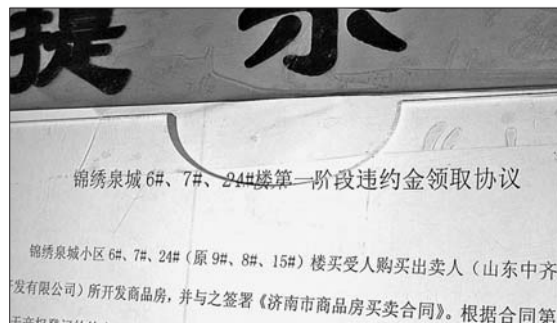 提示
锦绣泉城6#、7#、24#楼第一阶段违约金领取协议
锦绣泉城小区6#、7#、24#(原9#、8#、15#)楼买受人购买出卖人(山东中齐
发有限公司)所开发商品房,并与之签署《济南市商品房买卖合同》。根据合同第